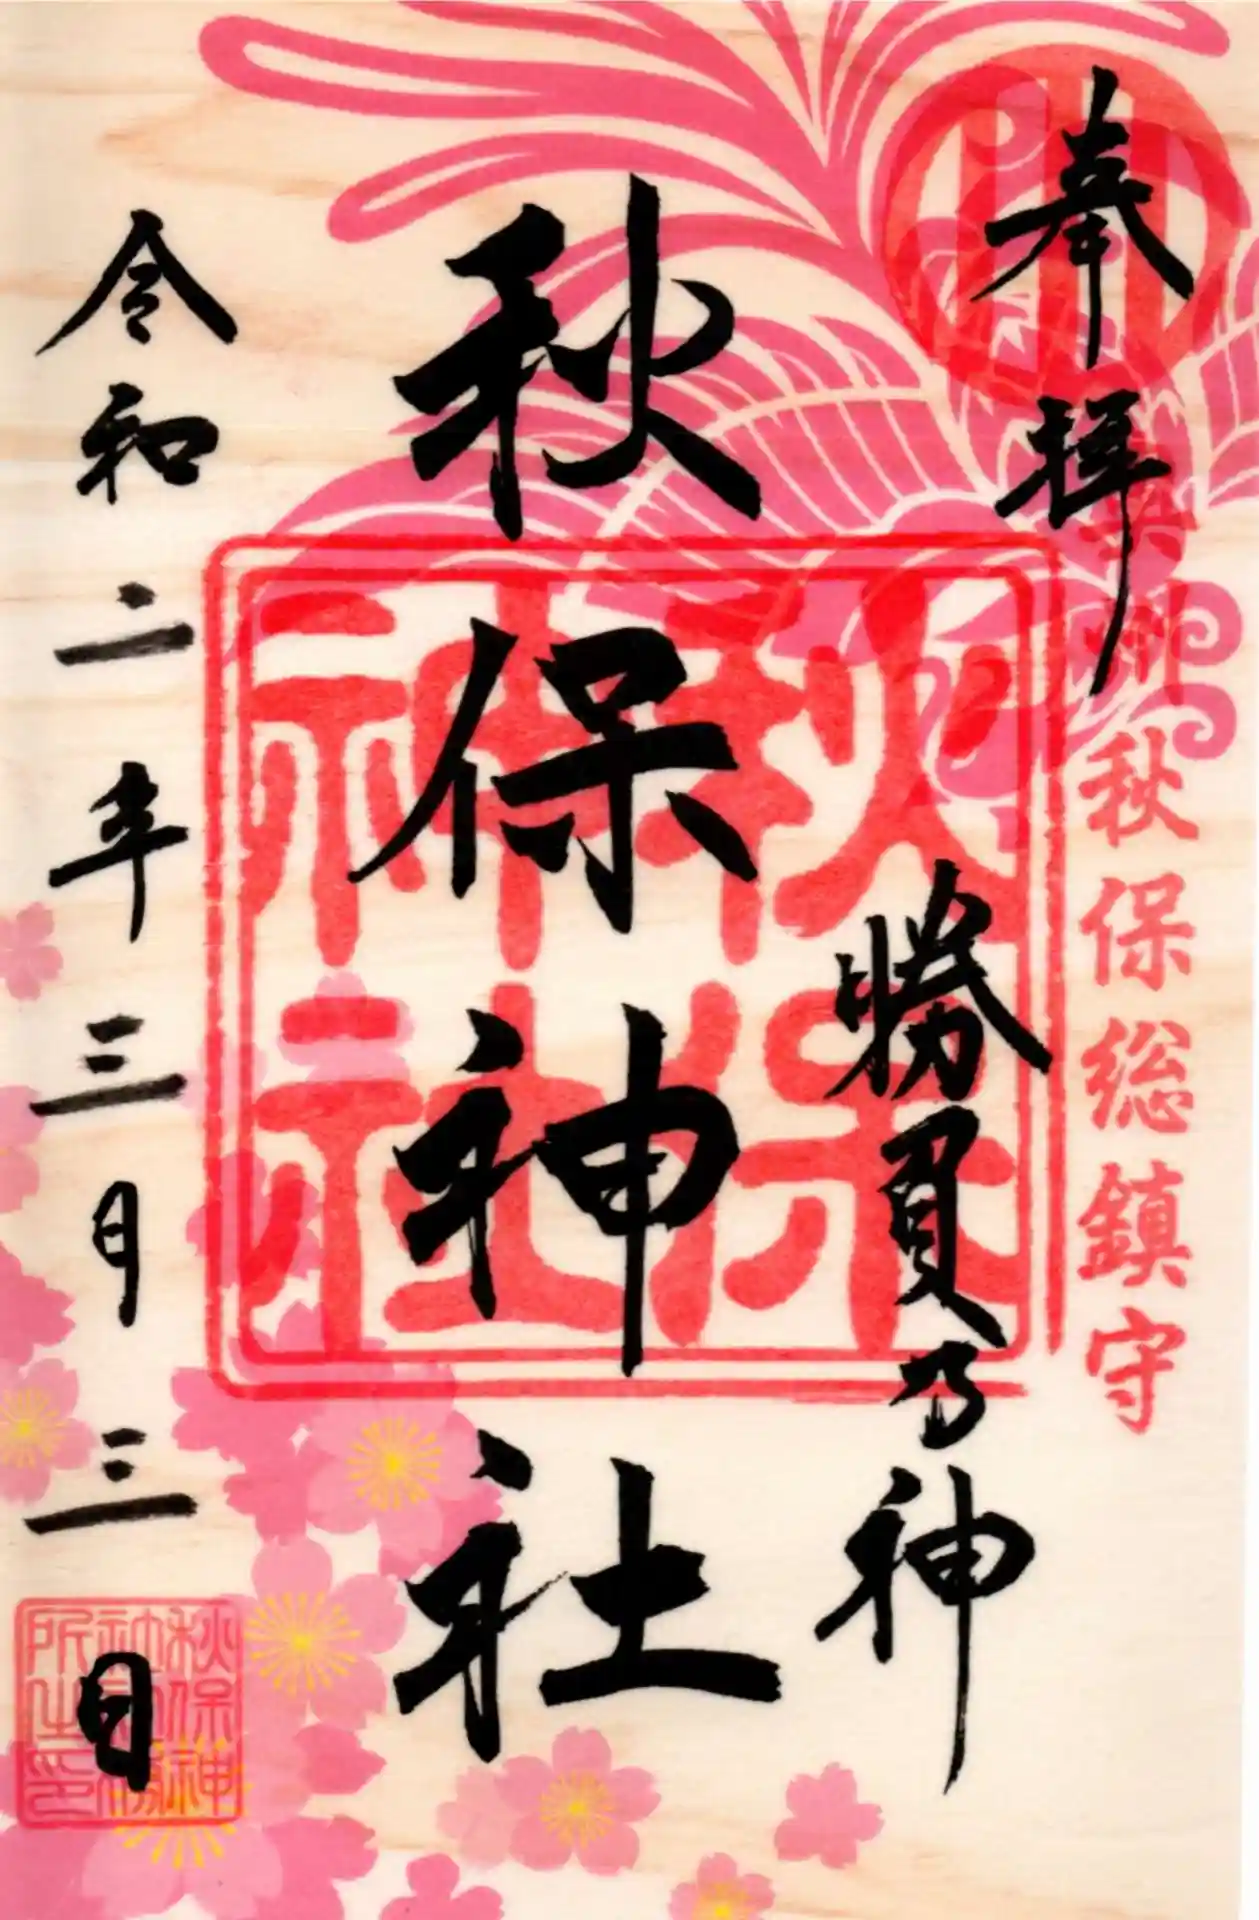 奉拝
奥州
秋保総鎮守
勝負乃神
秋保神社
秋保
神社
令和二年三月三日
秋保神
社社務
所之印